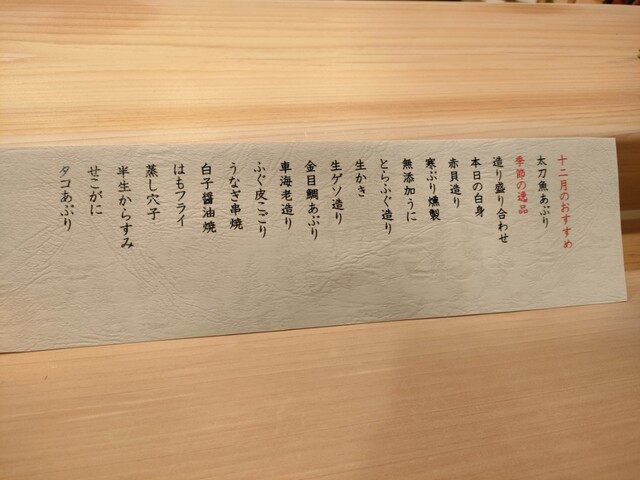 十二月のおすすめ
太刀魚あぶり
季節の逸品
造り盛り合わせ
本日の白身
赤貝造り
寒ぶり燻製
無添加うに
とらふぐ造り
生かき
生ゲソ造り
金目鯛あぶり
車海老造り
ふぐ皮こごり
うなぎ串焼
白子醤油焼
はもフライ
蒸し穴子
半生からすみ
せこがに
タコあぶり